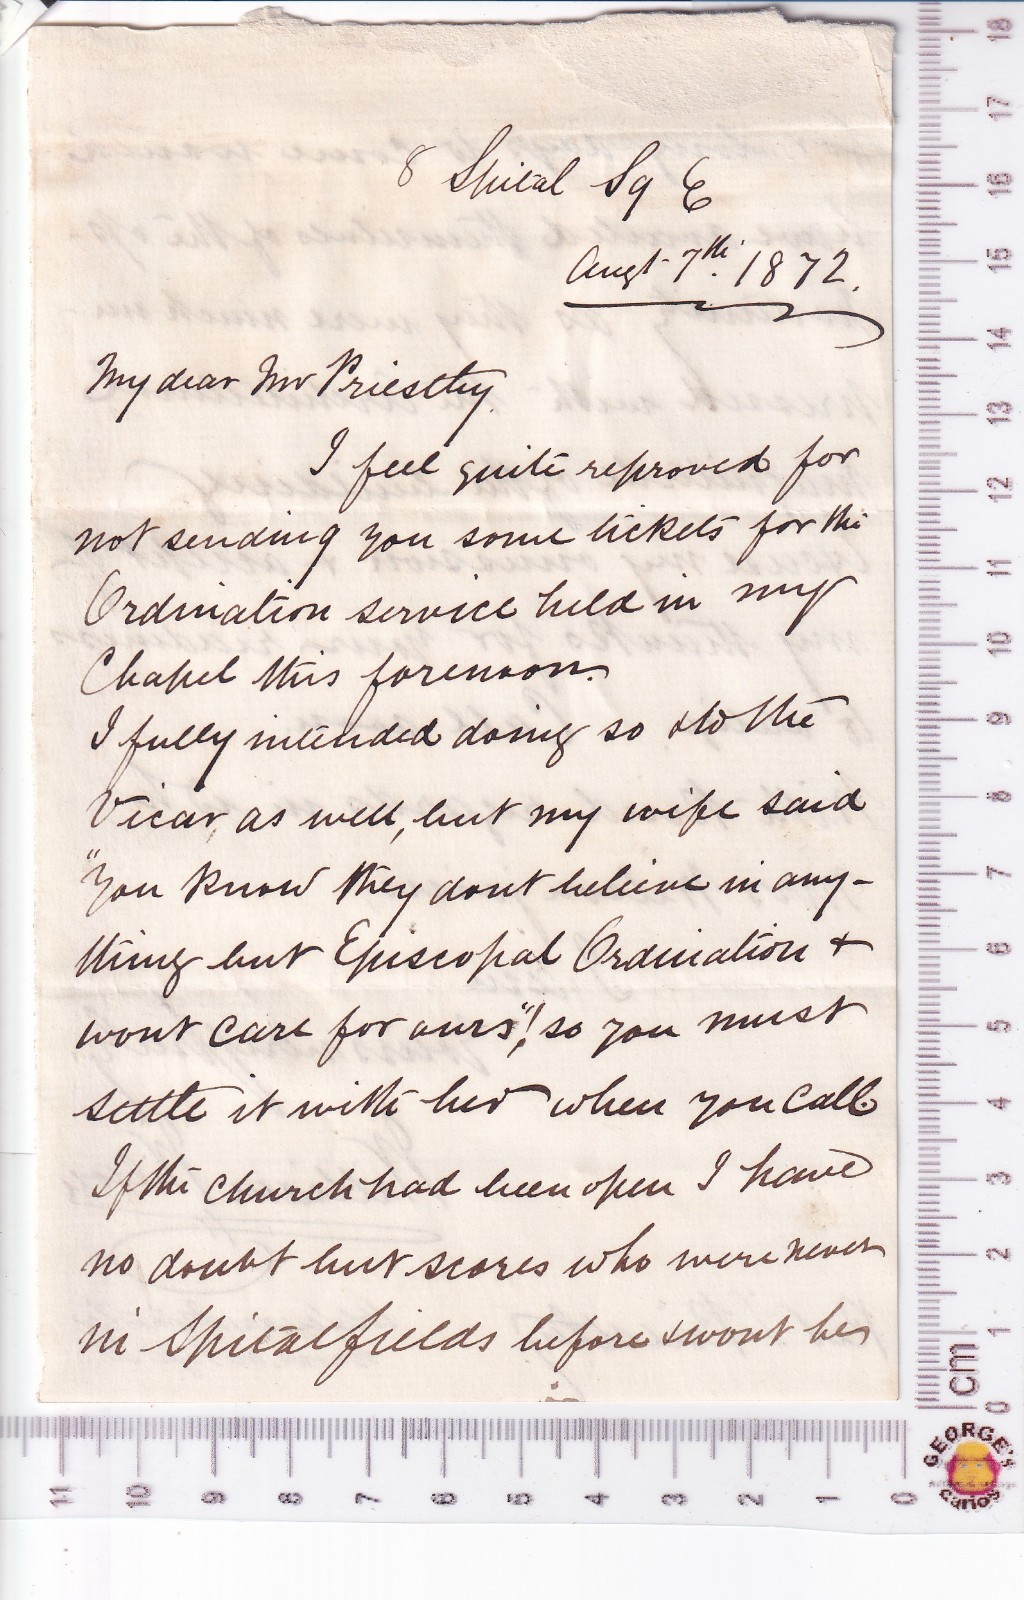 8 Spital Sq E
Augt 7th. 1872.
My dear Mr Priestley.
I feel quite reproved for
not sending you some tickets for the
Ordination service held in my
Chapel this forenoon.
I fully intended doing so & to the
Vicar, as well, but my wife said
"You know they dont believe in any-
thing but Episcopal Ordination &
wont care for ours"! so you must
settle it with her when you call.
If the church had been open I have
no doubt but scores who were never
in Spitalfields before & wont be
in
18
17
16
15
14
13
12
11
10
9
8
7
6
5
4
3
2
1
0
cm
11
10
9
8
7
6
5
4
3
2
1
0
GEORGE's
carios